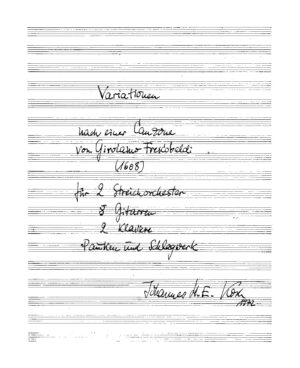 Variationen
nach einer Canzone
von Girolamo Frescobaldi
(1608)
für 2 Streichorchester
8 Gitarren
2 Klaviere
Pauken und Schlagwerk
Johannes H.E. Koch